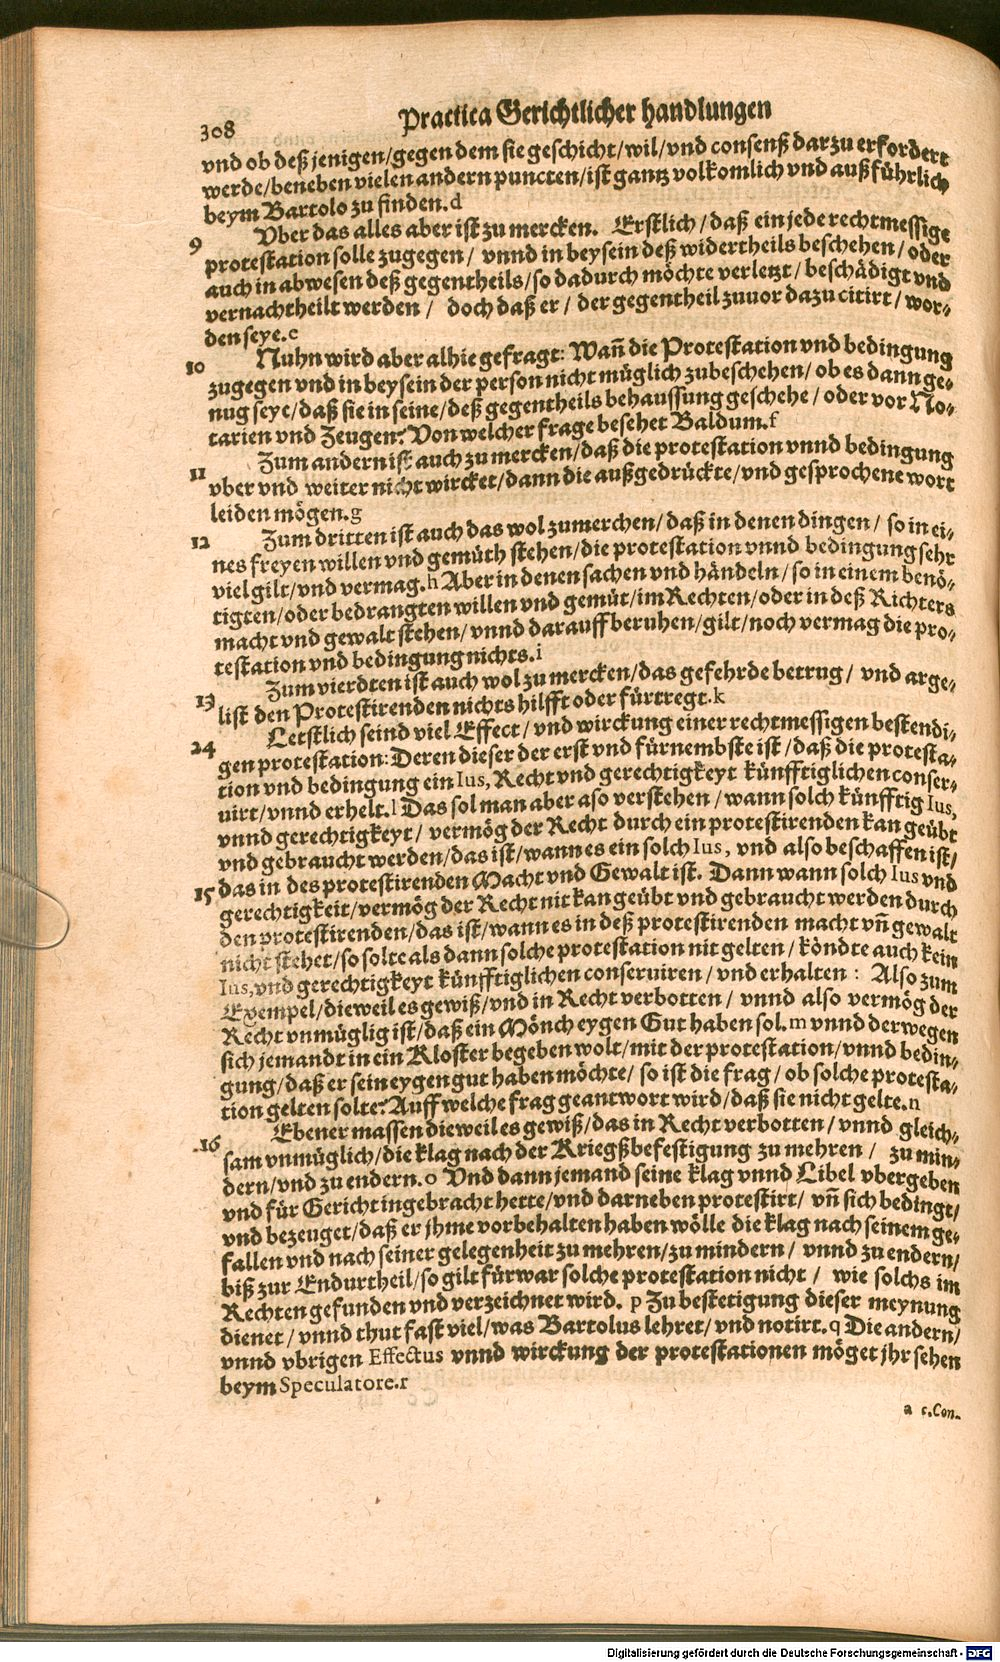 308 Practica Gerichtlicher handlungen
vnd ob deß jenigen/gegen dem sie geschicht/wil/vnd consenß darzu erfordert
werde/beneben vielen andern puncten/ist gantz volkomlich vnd außführlich
beym Bartolo zu finden.d
9 Vber das alles aber ist zu mercken. Erstlich/daß ein jede rechtmessige
protestation solle zugegen/ vnnd in beysein deß widertheils beschehen/oder
auch in abwesen deß gegentheils/so dadurch möchte verletzt/beschädigt vnd
vernachtheilt werden/ doch daß er/ der gegentheil zuuor dazu citirt/wor-
den seye.e
10 Nuhn wird aber alhie gefragt: Wañ die Protestation vnd bedingung
zugegen vnd in beysein der person nicht müglich zubeschehen/ob es dann ge-
nug seye/daß sie in seine/deß gegentheils behaussung geschehe/oder vor No-
tarien vnd Zeugen? Von welcher frage besehet Baldum.f
11 Zum andern ist auch zu mercken/daß die protestation vnnd bedingung
vber vnd weiter nicht wircket/dann die außgedrückte/vnd gesprochene wort
leiden mögen.g
12 Zum dritten ist auch das wol zumerchen/daß in denen dingen/ so in ei-
nes freyen willen vnd gemüth stehen/die protestation vnnd bedingung sehr
viel gilt/vnd vermag.h Aber in denen sachen vnd händeln/so in einem benö-
tigten/oder bedrangten willen vnd gemüt/im Rechten/oder in deß Richters
macht vnd gewalt stehen/vnnd darauff beruhen/gilt/noch vermag die pro-
testation vnd bedingung nichts.i
13 Zum vierdten ist auch wol zu mercken/das gefehrde betrug/ vnd arge-
list den Protestirenden nichts hilfft oder fürtregt.k
24 Letstlich seind viel Effect/vnd wirckung einer rechtmessigen bestendi-
gen protestation: Deren dieser der erst vnd fürnembste ist/daß die protesta-
tion vnd bedingung ein Ius, Recht vnd gerechtigkeyt künfftiglichen conser-
uirt/vnnd erhelt.l Das sol man aber aso verstehen/wann solch künfftig Ius,
vnnd gerechtigkeyt/ vermög der Recht durch ein protestirenden kan geübt
vnd gebraucht werden/das ist/wann es ein solch Ius, vnd also beschaffen ist/
15 das in des protestirenden Macht vnd Gewalt ist. Dann wann solch Ius vnd
gerechtigkeit/vermög der Recht nit kan geübt vnd gebraucht werden durch
den protestirenden/das ist/wann es in deß protestirenden macht vñ gewalt
nicht stehet/so solte als dann solche protestation nit gelten/köndte auch kein
Ius,vnd gerechtigkeyt künfftiglichen conseruiren/vnd erhalten: Also zum
Exempel/dieweil es gewiß/vnd in Recht verbotten/ vnnd also vermög der
Recht vnmüglig ist/daß ein Mönch eygen Gut haben sol.m vnnd derwegen
sich jemandt in ein Kloster begeben wolt/mit der protestation/vnnd bedin-
gung/daß er sein eygen gut haben möchte/ so ist die frag/ob solche protesta-
tion gelten solte? Auff welche frag geantwort wird/daß sie nicht gelte.n
16 Ebener massen dieweil es gewiß/das in Recht verbotten/vnnd gleich-
sam vnmüglich/die klag nach der Kriegßbefestigung zu mehren/ zu min-
dern/vnd zu endern.o Vnd dann jemand seine klag vnnd Libel vbergeben
vnd für Gericht ingebracht hette/vnd darneben protestirt/vñ sich bedingt/
vnd bezeuget/daß er jhme vorbehalten haben wölle die klag nach seinem ge-
fallen vnd nach seiner gelegenheit zu mehren/zu mindern/ vnnd zu endern/
biß zur Endurtheil/so gilt fürwar solche protestation nicht/ wie solchs im
Rechten gefunden vnd verzeichnet wird. p Zu bestetigung dieser meynung
dienet/vnnd thut fast viel/was Bartolus lehret/vnd notirt.q Die andern/
vnnd vbrigen Effectus vnnd wirckung der protestationen möget jhr sehen
beym Speculatore.r
a c.Con-
Digitalisierung gefördert durch die Deutsche Forschungsgemeinschaft - DFG